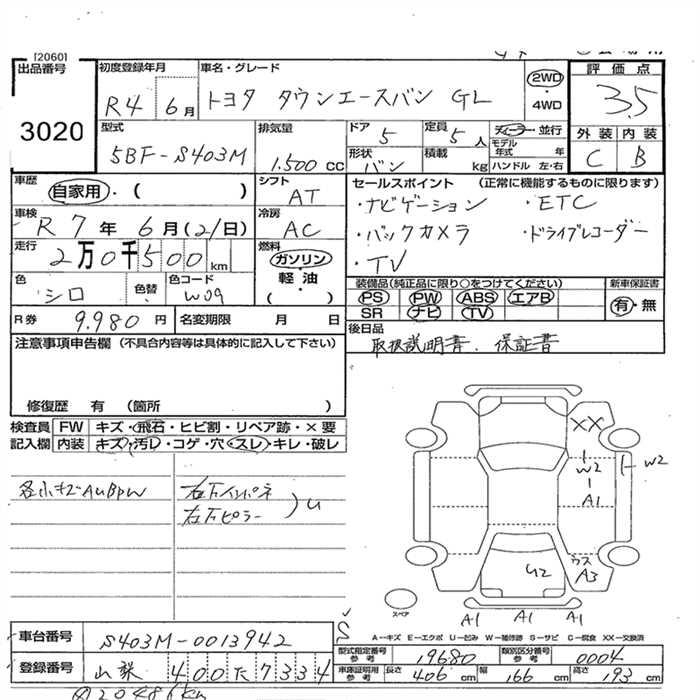 [2060]
出品番号
3020
初度登録年月
R4 6月
車名・グレード
トヨタ タウンエースバン GL
2WD
・
4WD
評価点
3.5
外装 内装
C B
型式
5BF-S403M
排気量
1.500 cc
ドア 5
定員 5人
形状 バン
積載 kg
ディーラー・並行
モデル年式 年
ハンドル 左・右
車歴
自家用・( )
シフト
AT
セールスポイント (正常に機能するものに限ります)
・ナビゲーション ・ETC
・バックカメラ ・ドライブレコーダー
・TV
車検
R 7年 6月(21日)
冷房
AC
走行
2万0千500 km
燃料
ガソリン
・
軽油
( )
色
シロ
色替
色コード
W09
装備品(純正品に限り○をつけてください)
PS PW ABS エアB
SR ナビ TV
新車保証書
有・無
R券 9.980円
名変期限 月 日
後日品
取扱説明書. 保証書
注意事項申告欄 (不具合内容等は具体的に記入して下さい)
修復歴 有 (箇所 )
検査員
記入欄
FW キズ・飛石・ヒビ割・リペア跡・×要
内装 キズ・汚レ・コゲ・穴・スレ・キレ・破レ
各小キズAUBPW
右下インパネ
右下ピラー
)U
XX
W2
A1
W2
U2
ウス
A3
スペア
A1 A1 A1
A--キズ E--エクボ U--凹み W--補修跡 S--サビ C--腐食 XX--交換済
車台番号
S403M-0013942
登録番号
山梨 400た7334
型式指定番号
参考
19680
類別区分番号
参考
0004
車庫証明用
参考
長さ 406cm
幅 166cm
高さ 193cm